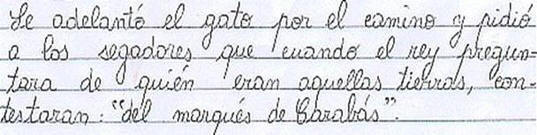 Se adelantó el gato por el camino y pidió
a los segadores que cuando el rey pregun=
tara de quién eran aquellas tierras, con-
testaran: "del marqués de Carabás".